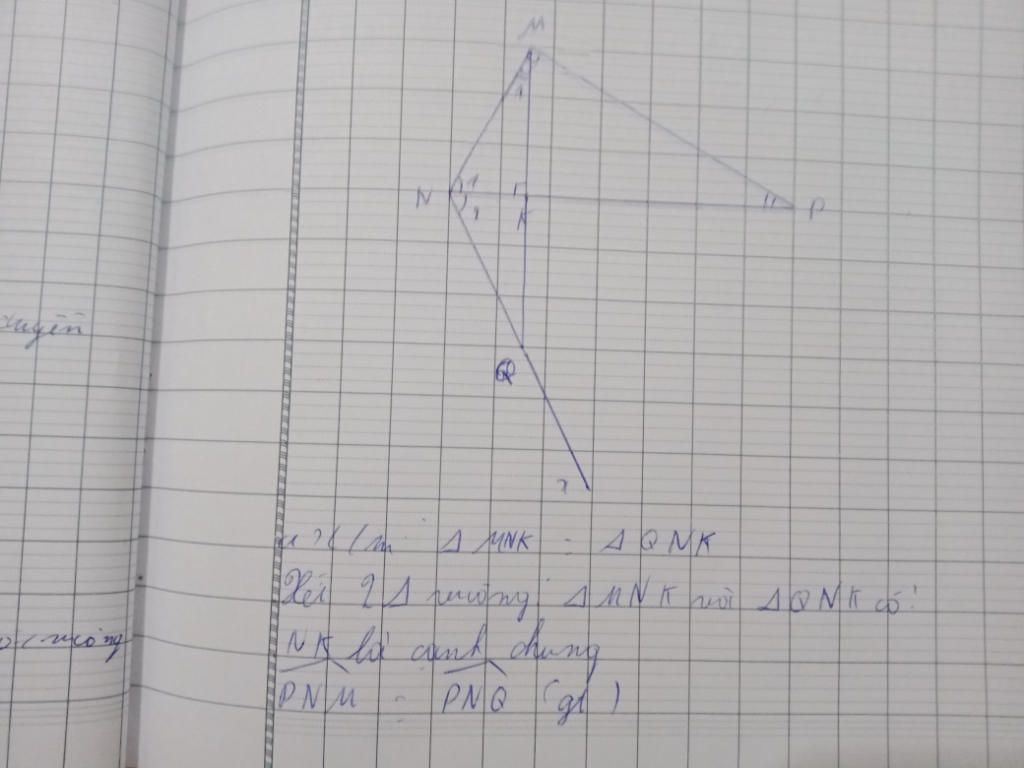 M
1
N
1
K
1
P
Q
x
a) C/m: Δ MNK = Δ QNK
Xét 2 Δ vuông: Δ MNK với Δ QNK có:
NK là cạnh chung
PNM = PNQ (gt)